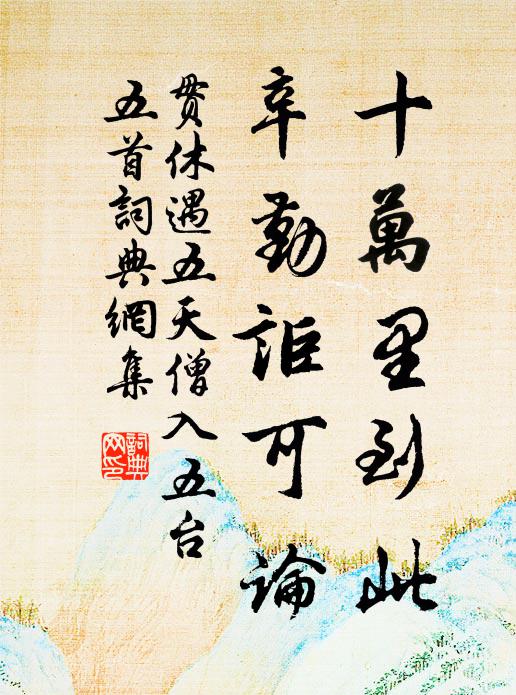 十萬里到此
辛勤詎可論
貫休遇五天僧入五台
五首詞典網集
詞典網印